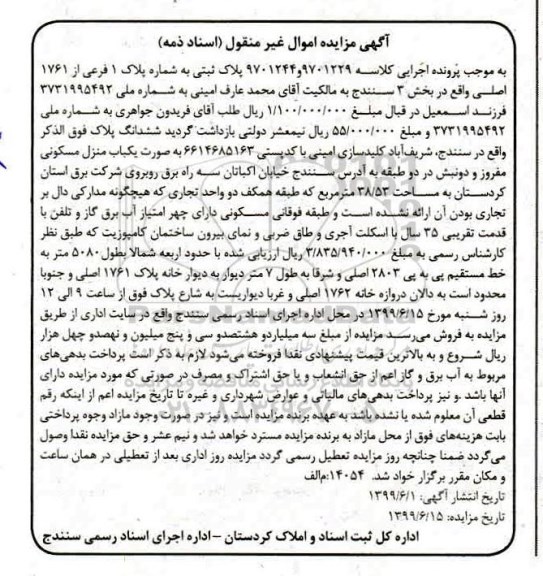 آگهی مزایده اموال غیر منقول (اسناد ذمه)
به موجب پرونده اجرایی کلاسه ۹۷۰۱۲۲۹و۹۷۰۱۲۴۴ پلاک ثبتی به شماره پلاک ۱ فرعی از ۱۷۶۱
اصلی واقع در بخش ۳ سنندج به مالکیت آقای محمد عارف امینی به شماره ملی ۳۷۳۱۹۹۵۴۹۲
فرزند اسمعیل در قبال مبلغ ۱/۱۰۰/۰۰۰/۰۰۰ ریال طلب آقای فریدون جواهری به شماره ملی
۳۷۳۱۹۹۵۴۹۲ و مبلغ ۵۵/۰۰۰/۰۰۰ ریال نیمعشر دولتی بازداشت گردید ششدانگ پلاک فوق الذکر
واقع در سنندج، شریف‌آباد کلیدسازی امینی با کدپستی ۶۶۱۴۶۸۵۱۶۳ به صورت یکباب منزل مسکونی
مفروز و دونبش در دو طبقه به آدرس سنندج خیابان اکباتان سه راه برق روبروی شرکت برق استان
کردستان به مساحت ۳۸/۵۳ متر مربع که طبقه همکف دو واحد تجاری که هیچگونه مدارکی دال بر
تجاری بودن آن ارائه نشده است و طبقه فوقانی مسکونی دارای چهر امتیاز آب برق گاز و تلفن با
قدمت تقریبی ۳۵ سال با اسکلت آجری و طاق ضربی و نمای بیرون ساختمان کامپوزیت که طبق نظر
کارشناس رسمی به مبلغ ۳/۸۳۵/۹۴۰/۰۰۰ ریال ارزیابی شده با حدود اربعه شمالا بطول ۵۰۸۰ متر به
خط مستقیم پی به پی ۲۸۰۳ اصلی و شرقا به طول ۷ متر دیوار به دیوار خانه پلاک ۱۷۶۱ اصلی و جنوبا
محدود است به دالان دروازه خانه ۱۷۶۲ اصلی و غربا دیواریست به شارع پلاک فوق از ساعت ۹ الی ۱۲
روز شنبه مورخ ۱۳۹۹/۶/۱۵ در محل اداره اجرای اسناد رسمی سنندج واقع در سایت اداری از طریق
مزایده به فروش می‌رسد مزایده از مبلغ سه میلیاردو هشتصدو سی و پنج میلیون و نهصدو چهل هزار
ریال شروع و به بالاترین قیمت پیشنهادی نقدا فروخته می‌شود لازم به ذکر است پرداخت بدهی‌های
مربوط به آب برق و گاز اعم از حق انشعاب و یا حق اشتراک و مصرف در صورتی که مورد مزایده دارای
آنها باشد .و نیز پرداخت بدهی‌های مالیاتی و عوارض شهرداری و غیره تا تاریخ مزایده اعم از اینکه رقم
قطعی آن معلوم شده یا نشده باشد به عهده برنده مزایده است و نیز در صورت وجود مازاد وجوه پرداختی
بابت هزینه‌های فوق از محل مازاد به برنده مزایده مسترد خواهد شد و نیم عشر و حق مزایده نقدا وصول
می‌گردد ضمنا چنانچه روز مزایده تعطیل رسمی گردد مزایده روز اداری بعد از تعطیلی در همان ساعت
و مکان مقرر برگزار خواد شد. ۱۴۰۵۴:م‌الف
تاریخ انتشار آگهی: ۱۳۹۹/۶/۱
تاریخ مزایده: ۱۳۹۹/۶/۱۵
اداره کل ثبت اسناد و املاک کردستان -اداره اجرای اسناد رسمی سنندج